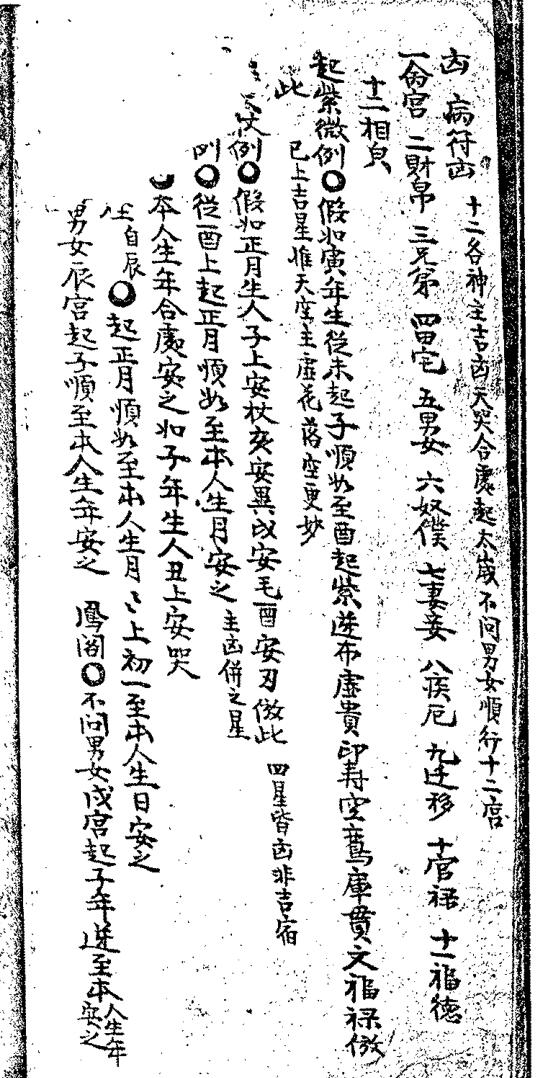 凶　病符凶　十二各神主吉凶天哭合處起太歲不问男女順行十二宮
一命宮　二財帛　三兄弟　四田宅　五男女　六奴僕　七妻妾　八疾厄　九迁移　十官禄　十一福德
十二相皃
起紫微例〇假如寅年生從未起子順数至酉起紫逆布虛貴印寿空鸞庫貫文福禄倣
此　已上吉星惟天空主虛花落空更妙
杖例〇假如正月生人子上安杖亥安異戌安毛酉安刃倣此　四星皆凶非吉宿
例〇從酉上起正月順数至本人生月安之　主凶併之星
本人生年合處安之如子年生人丑上安哭
自辰〇起正月順数至本人生月〻上初一至本人生日安之
男女辰宮起子順至本人生年安之　鳳阁〇不问男女戌宮起子年逆至本人生年安之